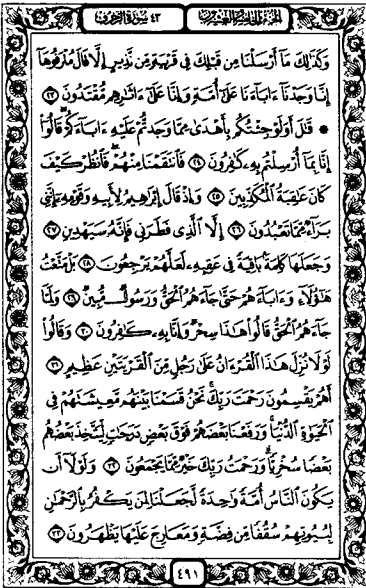 الجزء الخامس والعشرون
٤٣ سورة الزخرف
وَكَذَٰلِكَ مَآ أَرْسَلْنَا مِن قَبْلِكَ فِي قَرْيَةٍ مِّن نَّذِيرٍ إِلَّا قَالَ مُتْرَفُوهَآ
إِنَّا وَجَدْنَآ ءَابَآءَنَا عَلَىٰٓ أُمَّةٍ وَإِنَّا عَلَىٰٓ ءَاثَٰرِهِم مُّقْتَدُونَ ٢٣
* قَٰلَ أَوَلَوْ جِئْتُكُم بِأَهْدَىٰ مِمَّا وَجَدتُّمْ عَلَيْهِ ءَابَآءَكُمْ قَالُوٓا۟
إِنَّا بِمَآ أُرْسِلْتُم بِهِۦ كَٰفِرُونَ ٢٤ فَٱنتَقَمْنَا مِنْهُمْ فَٱنظُرْ كَيْفَ
كَانَ عَٰقِبَةُ ٱلْمُكَذِّبِينَ ٢٥ وَإِذْ قَالَ إِبْرَٰهِيمُ لِأَبِيهِ وَقَوْمِهِۦٓ إِنَّنِي
بَرَآءٌ مِّمَّا تَعْبُدُونَ ٢٦ إِلَّا ٱلَّذِي فَطَرَنِي فَإِنَّهُۥ سَيَهْدِينِ ٢٧
وَجَعَلَهَا كَلِمَةًۢ بَاقِيَةً فِي عَقِبِهِۦ لَعَلَّهُمْ يَرْجِعُونَ ٢٨ بَلْ مَتَّعْتُ
هَٰٓؤُلَآءِ وَءَابَآءَهُمْ حَتَّىٰ جَآءَهُمُ ٱلْحَقُّ وَرَسُولٌ مُّبِينٌ ٢٩ وَلَمَّا
جَآءَهُمُ ٱلْحَقُّ قَالُوا۟ هَٰذَا سِحْرٌ وَإِنَّا بِهِۦ كَٰفِرُونَ ٣٠ وَقَالُوا۟
لَوْلَا نُزِّلَ هَٰذَا ٱلْقُرْءَانُ عَلَىٰ رَجُلٍ مِّنَ ٱلْقَرْيَتَيْنِ عَظِيمٍ ٣١
أَهُمْ يَقْسِمُونَ رَحْمَتَ رَبِّكَ نَحْنُ قَسَمْنَا بَيْنَهُم مَّعِيشَتَهُمْ فِي
ٱلْحَيَوٰةِ ٱلدُّنْيَا وَرَفَعْنَا بَعْضَهُمْ فَوْقَ بَعْضٍ دَرَجَٰتٍ لِّيَتَّخِذَ بَعْضُهُم
بَعْضًا سُخْرِيًّا وَرَحْمَتُ رَبِّكَ خَيْرٌ مِّمَّا يَجْمَعُونَ ٣٢ وَلَوْلَآ أَن
يَكُونَ ٱلنَّاسُ أُمَّةً وَٰحِدَةً لَّجَعَلْنَا لِمَن يَكْفُرُ بِٱلرَّحْمَٰنِ
لِبُيُوتِهِمْ سُقُفًا مِّن فِضَّةٍ وَمَعَارِجَ عَلَيْهَا يَظْهَرُونَ ٣٣
٤٩١